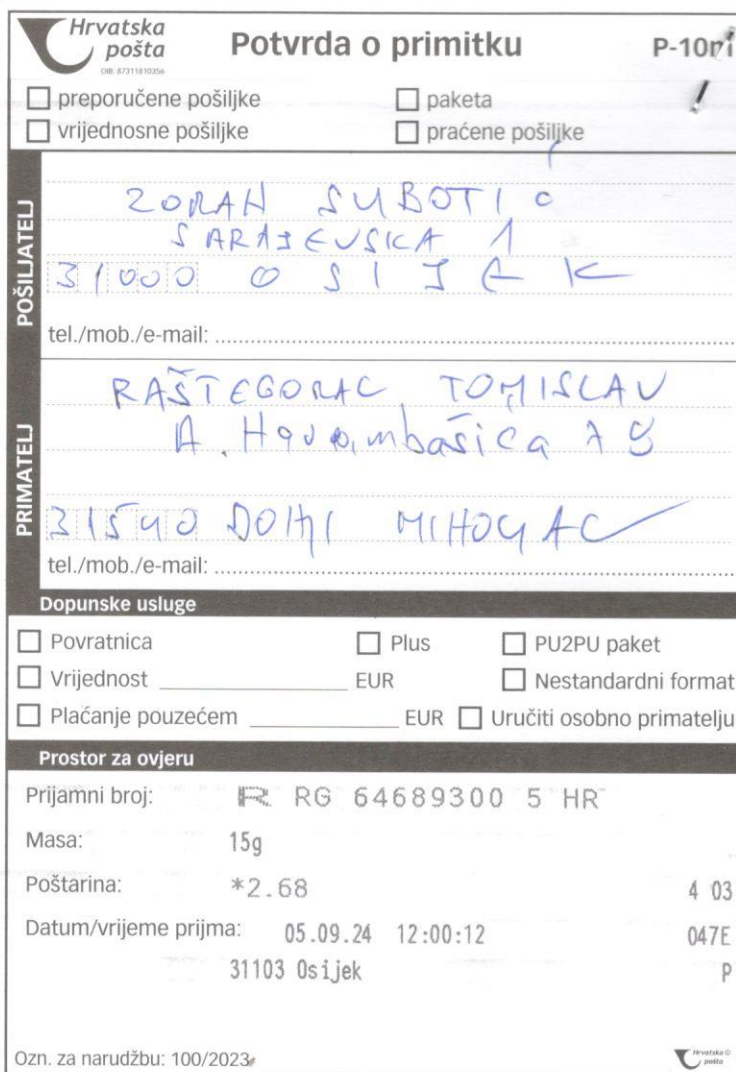 Hrvatska
pošta
OIB: 87311810356
Potvrda o primitku
P-10
preporučene pošiljke
paketa
vrijednosne pošiljke
praćene pošiljke
POŠILJATELJ
ZORAN SUBOTIĆ
SARAJEVSKA 1
31000 OSIJEK
tel./mob./e-mail:
PRIMATELJ
RAŠTEGORAC TOMISLAV
A. Harambašića
31540 DONJI MIHOLJAC
tel./mob./e-mail:
Dopunske usluge
Povratnica
Plus
PU2PU paket
Vrijednost EUR
Nestandardni format
Plaćanje pouzećem EUR
Uručiti osobno primatelju
Prostor za ovjeru
Prijamni broj: R RG 64689300 5 HR
Masa: 15g
Poštarina: *2.68 4 03
Datum/vrijeme prijma: 05.09.24 12:00:12 047E
31103 Osijek P
Ozn. za narudžbu: 100/2023
Hrvatska
pošta